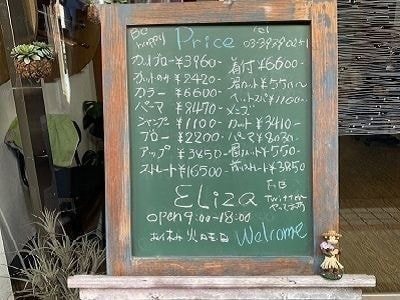 Be happy
Price
Tel
カットブロー ¥3960-
カットのみ ¥2420-
カラー ¥6600-
パーマ ¥8470-
シャンプー ¥1100-
ブロー ¥2200-
アップ ¥3850-
ストレート ¥16500-
着付 ¥6600-
眉カット ¥550〜
ヘッドスパ ¥1100〜
メンズ
カット ¥3410-
パーマ
¥550-
¥3850
ELiza
open 9:00-18:00
お休み 火曜日
FB
Twitter
やってます
Welcome